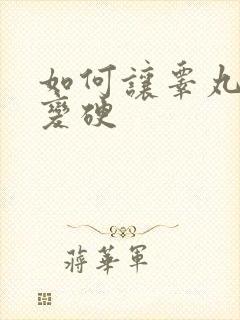 如何讓睪丸
變硬
蔣華軍